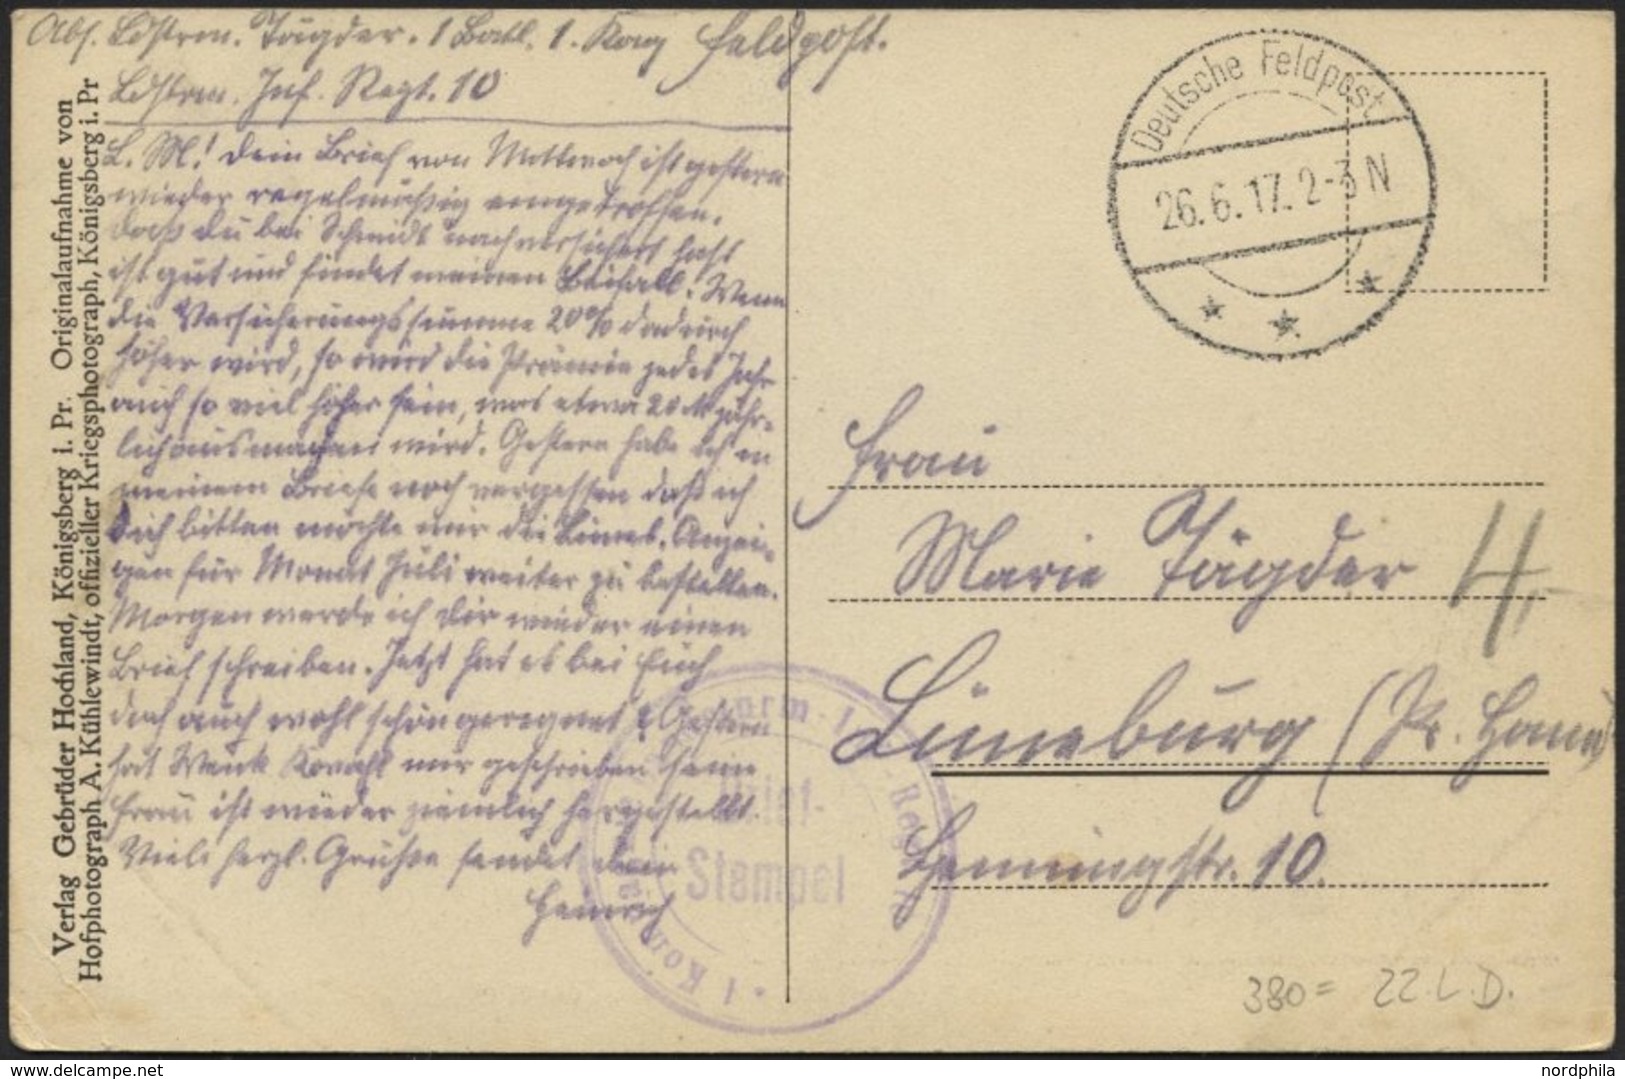 Abs. Ldstrm. Tägder. 1 Batl. 1. Komp Feldpost.
Ldstrm. Inf. Regt. 10
L. M.! Dein Brief von Mittwoch ist gestern
wieder regelmäßig eingetroffen.
Daß Du bei Schmidt nachversichert hast
ist gut und findet meinen Beifall. Wenn
die Versicherungssumme 20% dadurch
höher wird, so wird die Prämie jedes Jahr
auch so viel höher sein, was etwa 20 M jähr-
lich ausmachen wird. Gestern habe ich in
meinem Briefe noch vergessen daß ich
Dich bitten möchte mir die Lüneb. Anzei-
gen für Monat Juli weiter zu bestellen.
Morgen werde ich Dir wieder einen
Brief schreiben. Jetzt hat es bei Euch
doch auch wohl schön geregnet? Gestern
hat mir geschrieben seine
Frau ist wieder ziemlich hergestellt.
Viele herzl. Grüße sendet Dein
Heinrich
Verlag Gebrüder Hochland, Königsberg i. Pr. Originalaufnahme von
Hofphotograph A. Kühlewindt, offizieller Kriegsphotograph, Königsberg i. Pr
Deutsche Feldpost
26.6.17. 2-3 N
Frau
Marie Tägder
4,-
Lüneburg (Pr. Hann)
Henningstr. 10.
Brief-
Stempel
380= 22 L.D.
nordphila